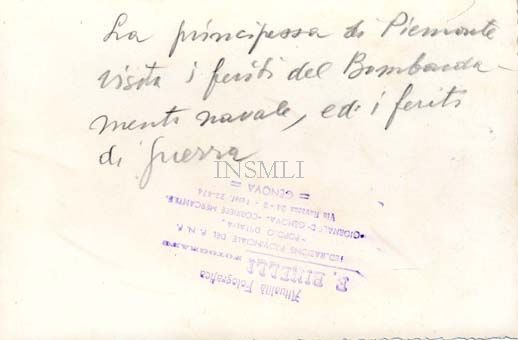 La principessa di Piemonte
visita i feriti del Bombarda-
mento navale, ed i feriti
di guerra
INSMLI
Attualità Fotografica
E. PINELLI FOTOGRAFO
FEDERAZIONE PROVINCIALE DEL P. N. F.
"POPOLO D'ITALIA"
"GIORNALE DI GENOVA" - "CORRIERE MERCANTILE"
Via
= GENOVA =